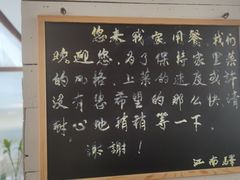 您来我家用餐，我们
欢迎您，为了保持家里菜
的风格，上菜的速度或许
没有您希望的那么快请
耐心地稍稍等一下。
谢谢！
江南